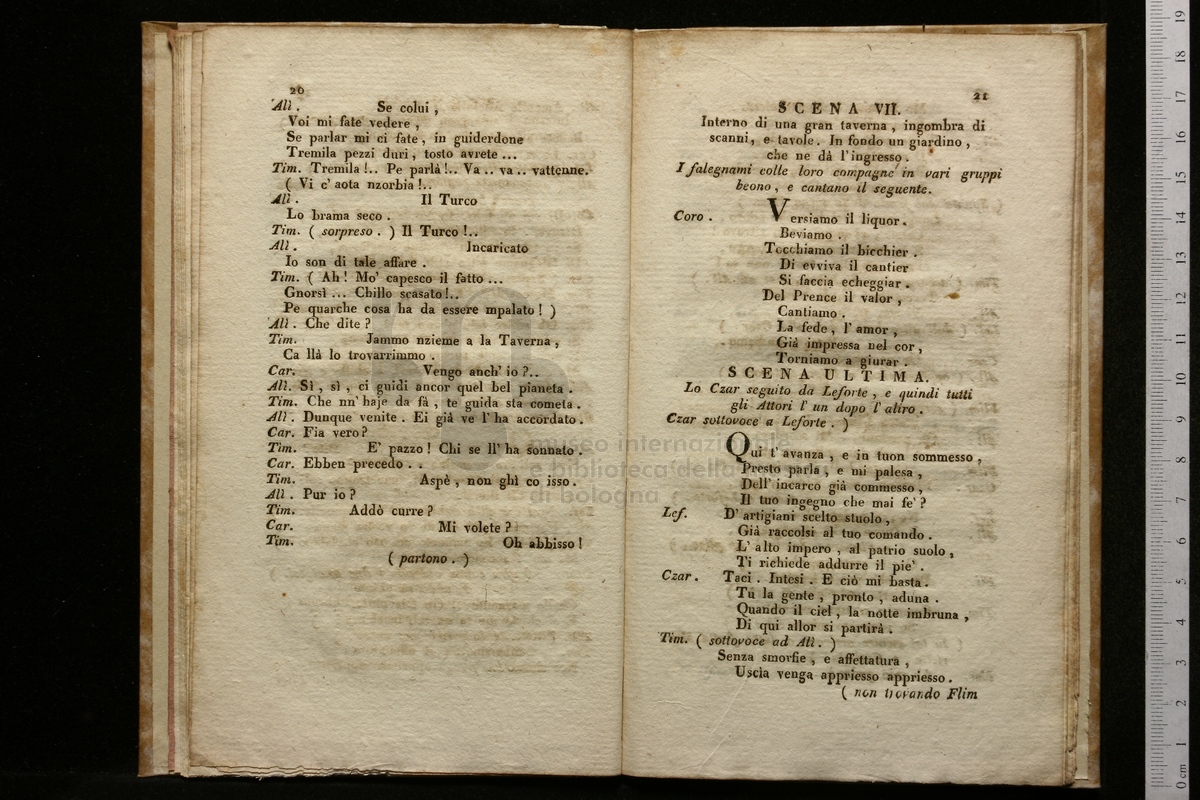 20
Alì. Se colui,
Voi mi fate vedere,
Se parlar mi ci fate, in guiderdone
Tremila pezzi duri, tosto avrete ...
Tim. Tremila!.. Pe parlà!.. Va .. va .. vattenne.
( Vi c' aota nzorbia!..
Alì. Il Turco
Lo brama seco.
Tim. ( sorpreso. ) Il Turco!..
Alì. Incaricato
Io son di tale affare.
Tim. ( Ah! Mo' capesco il fatto ...
Gnorsì ... Chillo scasato!..
Pe quarche cosa ha da essere mpalato! )
Alì. Che dite?
Tim. Jammo nzieme a la Taverna,
Ca llà lo trovarrimmo.
Car. Vengo anch' io?..
Alì. Sì, sì, ci guidi ancor quel bel pianeta.
Tim. Che nn' haje da fà, te guida sta cometa.
Alì. Dunque venite. Ei già ve l' ha accordato.
Car. Fia vero?
Tim. E' pazzo! Chi se ll' ha sonnato.
Car. Ebben precedo..
Tim. Aspè, non ghì co isso.
Alì. Pur io?
Tim. Addò curre?
Car. Mi volete?
Tim. Oh abbisso!
( partono. )
21
SCENA VII.
Interno di una gran taverna, ingombra di
scanni, e tavole. In fondo un giardino,
che ne dà l'ingresso.
I falegnami colle loro compagne in vari gruppi
beono, e cantano il seguente.
Coro. Versiamo il liquor.
Beviamo.
Tocchiamo il bicchier.
Di evviva il cantier
Si faccia echeggiar.
Del Prence il valor,
Cantiamo.
La fede, l' amor,
Già impressa nel cor,
Torniamo a giurar.
SCENA ULTIMA.
Lo Czar seguito da Leforte, e quindi tutti
gli Attori l' un dopo l' altro.
Czar sottovoce a Leforte. )
Qui t' avanza, e in tuon sommesso,
Presto parla, e mi palesa,
Dell' incarco già commesso,
Il tuo ingegno che mai fe'?
Lef. D' artigiani scelto stuolo,
Già raccolsi al tuo comando.
L' alto impero, al patrio suolo,
Ti richiede addurre il pie'.
Czar. Taci. Intesi. E ciò mi basta.
Tu la gente, pronto, aduna.
Quando il ciel, la notte imbruna,
Di qui allor si partirà.
Tim. ( sottovoce ad Alì. )
Senza smorfie, e affettatura,
Uscìa venga appriesso appriesso.
( non trovando Flim
museo internazionale
e biblioteca della
di bologna
0 cm 1 2 3 4 5 6 7 8 9 10 11 12 13 14 15 16 17 18 19